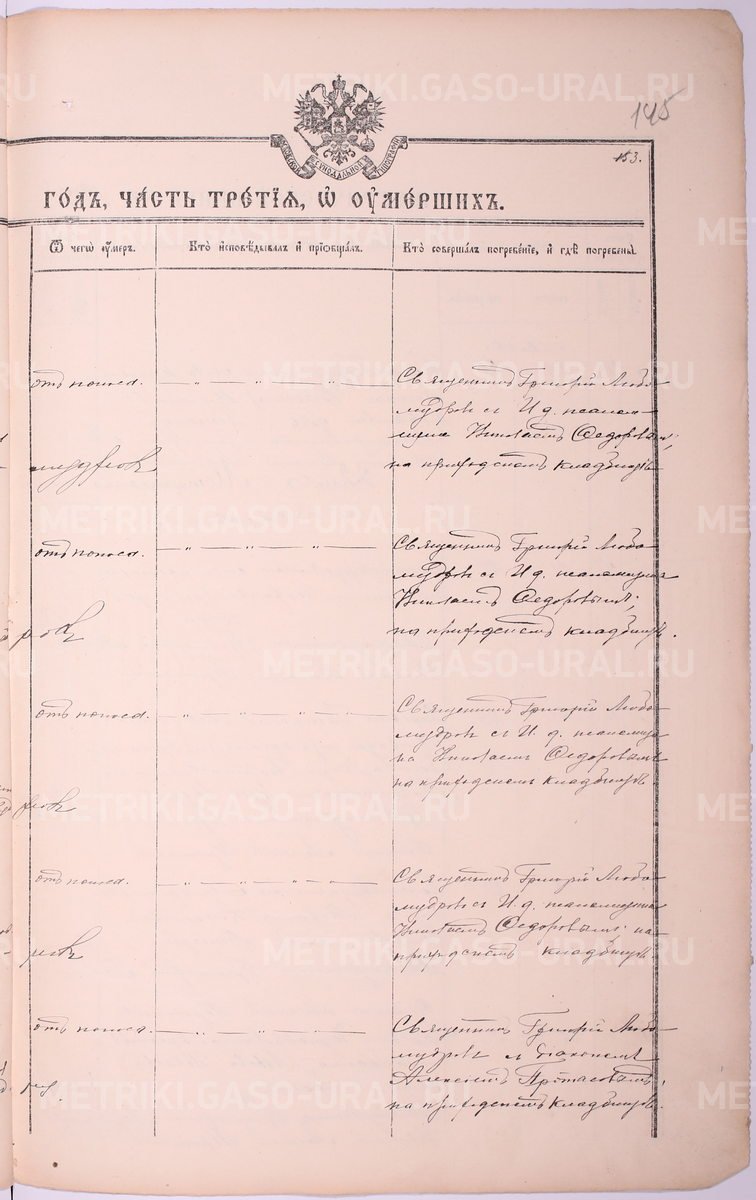 145
153.
МОСКОВСКОЙ СѴНОДАЛЬНОЙ ТИПОГРАФІИ
ГО́ДЪ, ЧА́СТЬ ТРЕ́ТІѦ, Ѡ҆ ОУ҆МЕ́РШИХЪ.
Ѿ чегѡ̀ ᲂу҆́меръ. Кто̀ и҆сповѣ́дывалъ и҆ прїѡбща́лъ. Кто̀ соверша́лъ погребе́нїе, и҆ гдѣ̀ погребены̀.
отъ поноса. — „ — „ — „ — Священникъ Григорій Любо-
мудровъ съ И. д. псалом-
щика Николаемъ Ѳедоровым;
на приходскомъ кладбищѣ
отъ поноса. — „ — „ — „ — Священникъ Григорій Любо-
мудровъ съ И. д. псаломщика
Николаемъ Ѳедоровымъ;
на приходскомъ кладбищѣ.
отъ поноса. — „ — „ — „ — Священникъ Григорій Любо-
мудровъ съ И. д. псаломщи-
ка Николаемъ Ѳедоровымъ
на приходскомъ кладбищѣ.
отъ поноса. — „ — „ — „ — Священникъ Григорій Любо-
мудровъ съ И. д. псаломщика
Николаемъ Ѳедоровымъ на
приходскомъ кладбищѣ.
отъ поноса. — „ — „ — „ — Священникъ Григорій Любо-
мудровъ и діакономъ
Алексѣемъ Протасовымъ,
на приходскомъ кладбищѣ.
METRIKI.GASO-URAL.RU